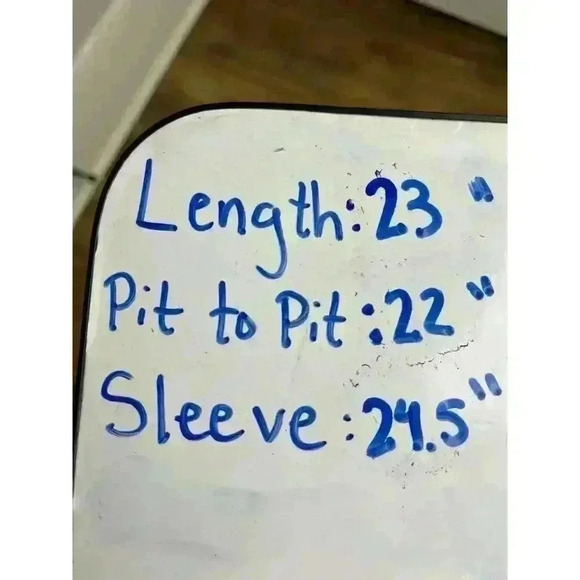 Length: 23 "
Pit to Pit: 22 "
Sleeve: 24.5"